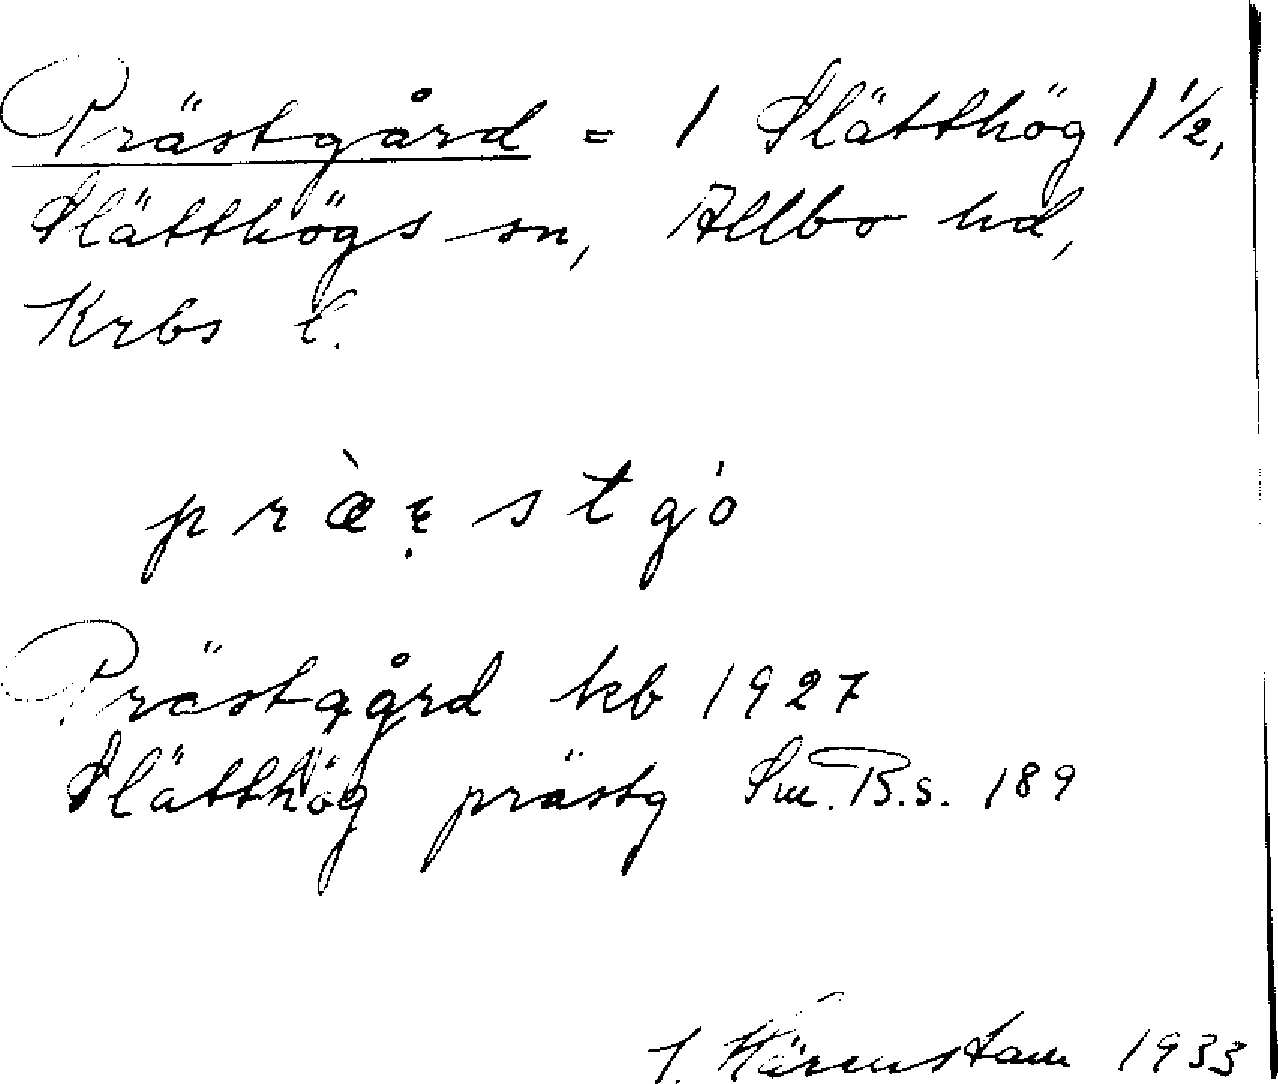 Prästgård = 1 Slätthög 1 1/2,
Slätthögs sn, Allbo hd,
Krbs l.
pràꞓ̣stgό
Prästgård kb 1927
Slätthög prästg Sm. B.s. 189
J. Härenstam 1933